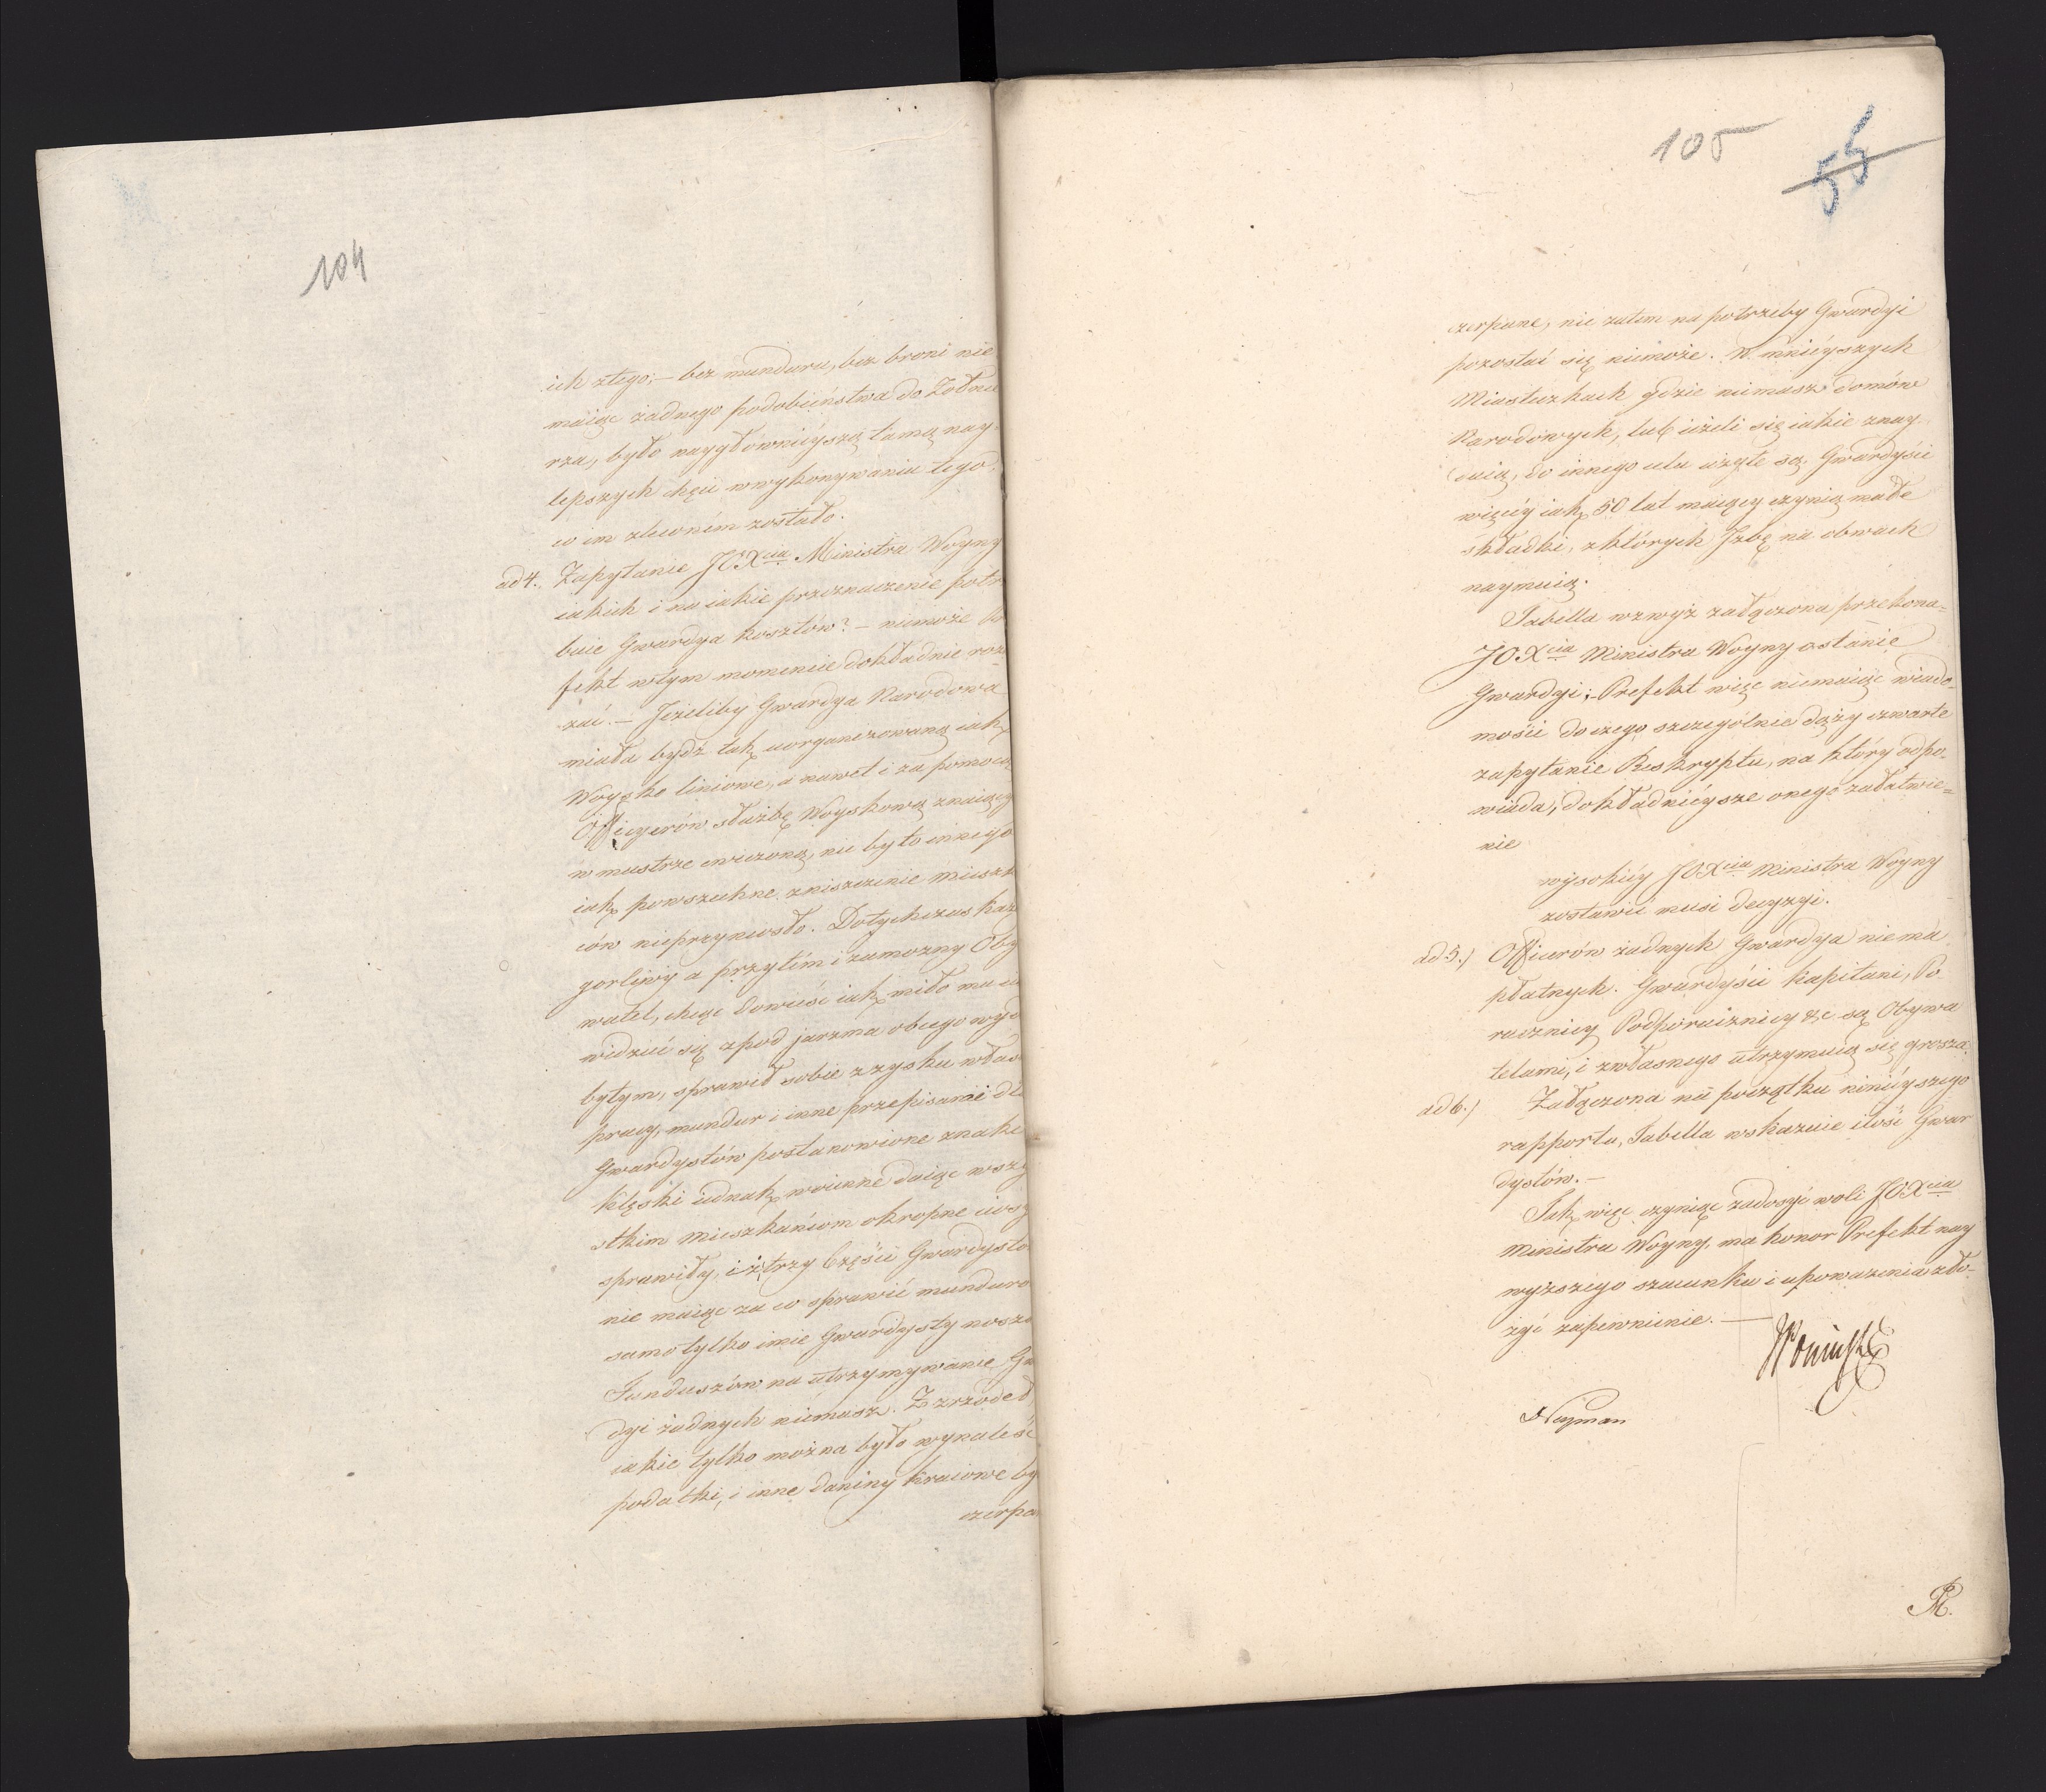 104
ich złego; – bez munduru, bez broni nie
maiąc żadnego podobieństwa do Żołnie
rza, było naygłównieyszą tamą nay-
lepszych chęci w wykonywaniu tego
co im zleconém zostało.
ad 4. Zapytanie JOXcia Ministra Woyny
iakich i na iakie przeznaczenie potrz
buie Gwardya kosztów? – niemoże
fekt w tym momencie dokładnie roz
zać. – Jeżeliby Gwardya Narodowa
miała bydź tak uorganizowaną iak
Woysko liniowe, a nawet i za pomocą
Officyerów służbę Woyskową znaiący
w mustrze cwiczoną, nic by to innego
iak powszechne zniszczenie mieszk
ców nieprzyniosło. Dotychczas każ
gorliwy a przytém i zamożny Oby
watel, chcąc dowieść iak miło mu
widzieć się z pod jarzma obcego wyd
bytym, sprawił sobie z zysku włas
pracy, mundur i inne przepisami dla
Gwardystów postanowione znaki
klęski iednak woienne daiąc wszy
stkim Mieszkańcom okropne ciosy
sprawiły, iż trzy Części Gwardysto
nie maiąc za co sprawić munduro
samo tylko imie Gwardysty nosz
Funduszów na utrzymywanie Gw
dyi żadnych niemasz. Z zrzodeł
iakie tylko można było wynaleść
podatki, i inne daniny kraiowe by
czerpa
105
55
czerpane, nic zatem na potrzeby Gwardyi
pozostać się niemoże. W mnieyszych
Miasteczkach gdzie niemasz domów
Narodowych, lub ieżeli się iakie znay
duią, do innego celu użyte są. Gwardyści
więcéy iak 50 lat maiący czynią małe
składki, z których Izbę na obwach
naymuią.
Tabella wzwyż załączona przekona-
JOXcia Ministra Woyny o stanie
Gwardyi; – Prefekt więc niemaiąc wiado-
mości do czego szczególnie dąży czwarte
zapytanie Reskryptu, na który odpo-
wiada, dokładnieysze onego załatwie=
nie
wysokiéy JOXcia Ministra Woyny
zostawić musi decyzyi.
ad 5.) Officerów żadnych Gwardya niema
płatnych. Gwardyści Kapitani, Po
rucznicy Podporucznicy &c są Obywa
telami, i z własnego utrzymuią się grosza.
ad 6.) Załączona na początku ninieyszego
rapportu, Tabella wskazuie ilość Gwar
dystów. –
Tak więc czyniąc zadosyć woli JOXcia
Ministra Woyny, ma honor Prefekt nay
wyższego szacunku i upoważenia zło-
żyć zapewnienie. –
Neyman